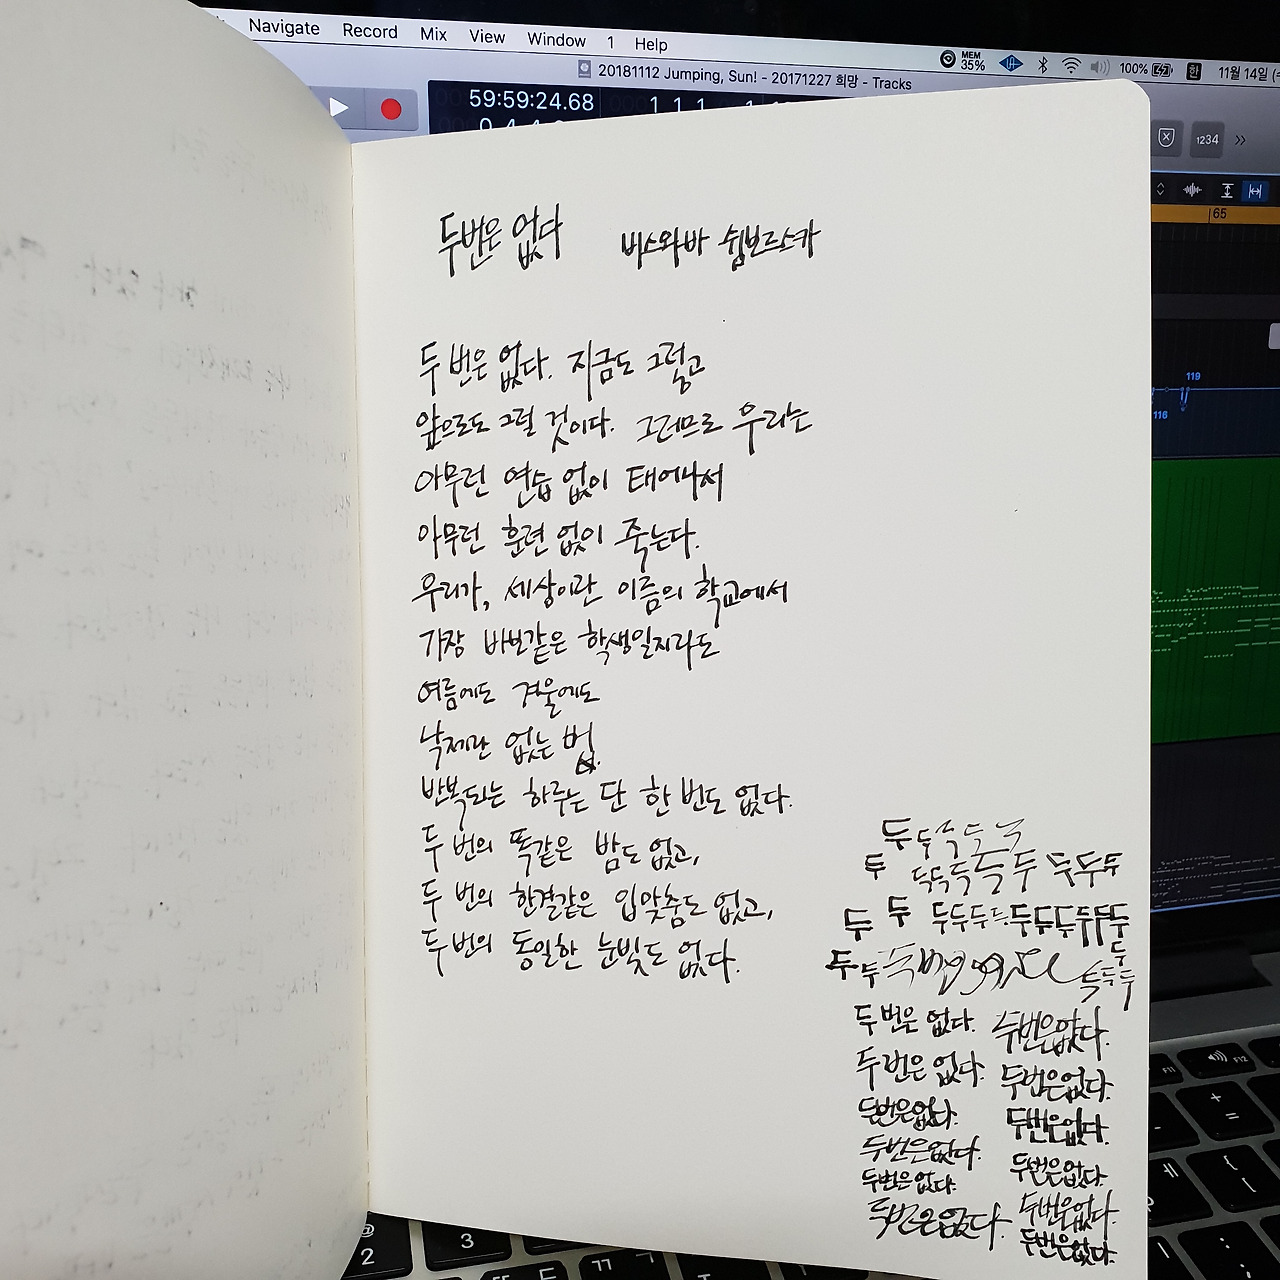 Navigate Record Mix View Window 1 Help
MEM 35% 100% 한 11월 14일
20181112 Jumping, Sun! - 20171227 희망 - Tracks
59:59:24.68 1 1 1
1234
65
119
116
두번은 없다 비스와바 쉼보르스카
두 번은 없다. 지금도 그렇고
앞으로도 그럴 것이다. 그러므로 우리는
아무런 연습 없이 태어나서
아무런 훈련 없이 죽는다.
우리가, 세상이란 이름의 학교에서
가장 바보같은 학생일지라도
여름에도 겨울에도
낙제란 없는 법.
반복되는 하루는 단 한 번도 없다.
두 번의 똑같은 밤도 없고,
두 번의 한결같은 입맞춤도 없고,
두 번의 동일한 눈빛도 없다.
두 두
두
두 두
두 두
두 번은 없다. 두번은없다.
두 번은 없다. 두번은없다.
두번은없다. 두번은없다.
두번은없다. 두번은없다.
두번은없다. 두번은없다.
두번은없다. 두번은없다.
F11 F12
+ =
{ [
: ;
@ 2
3